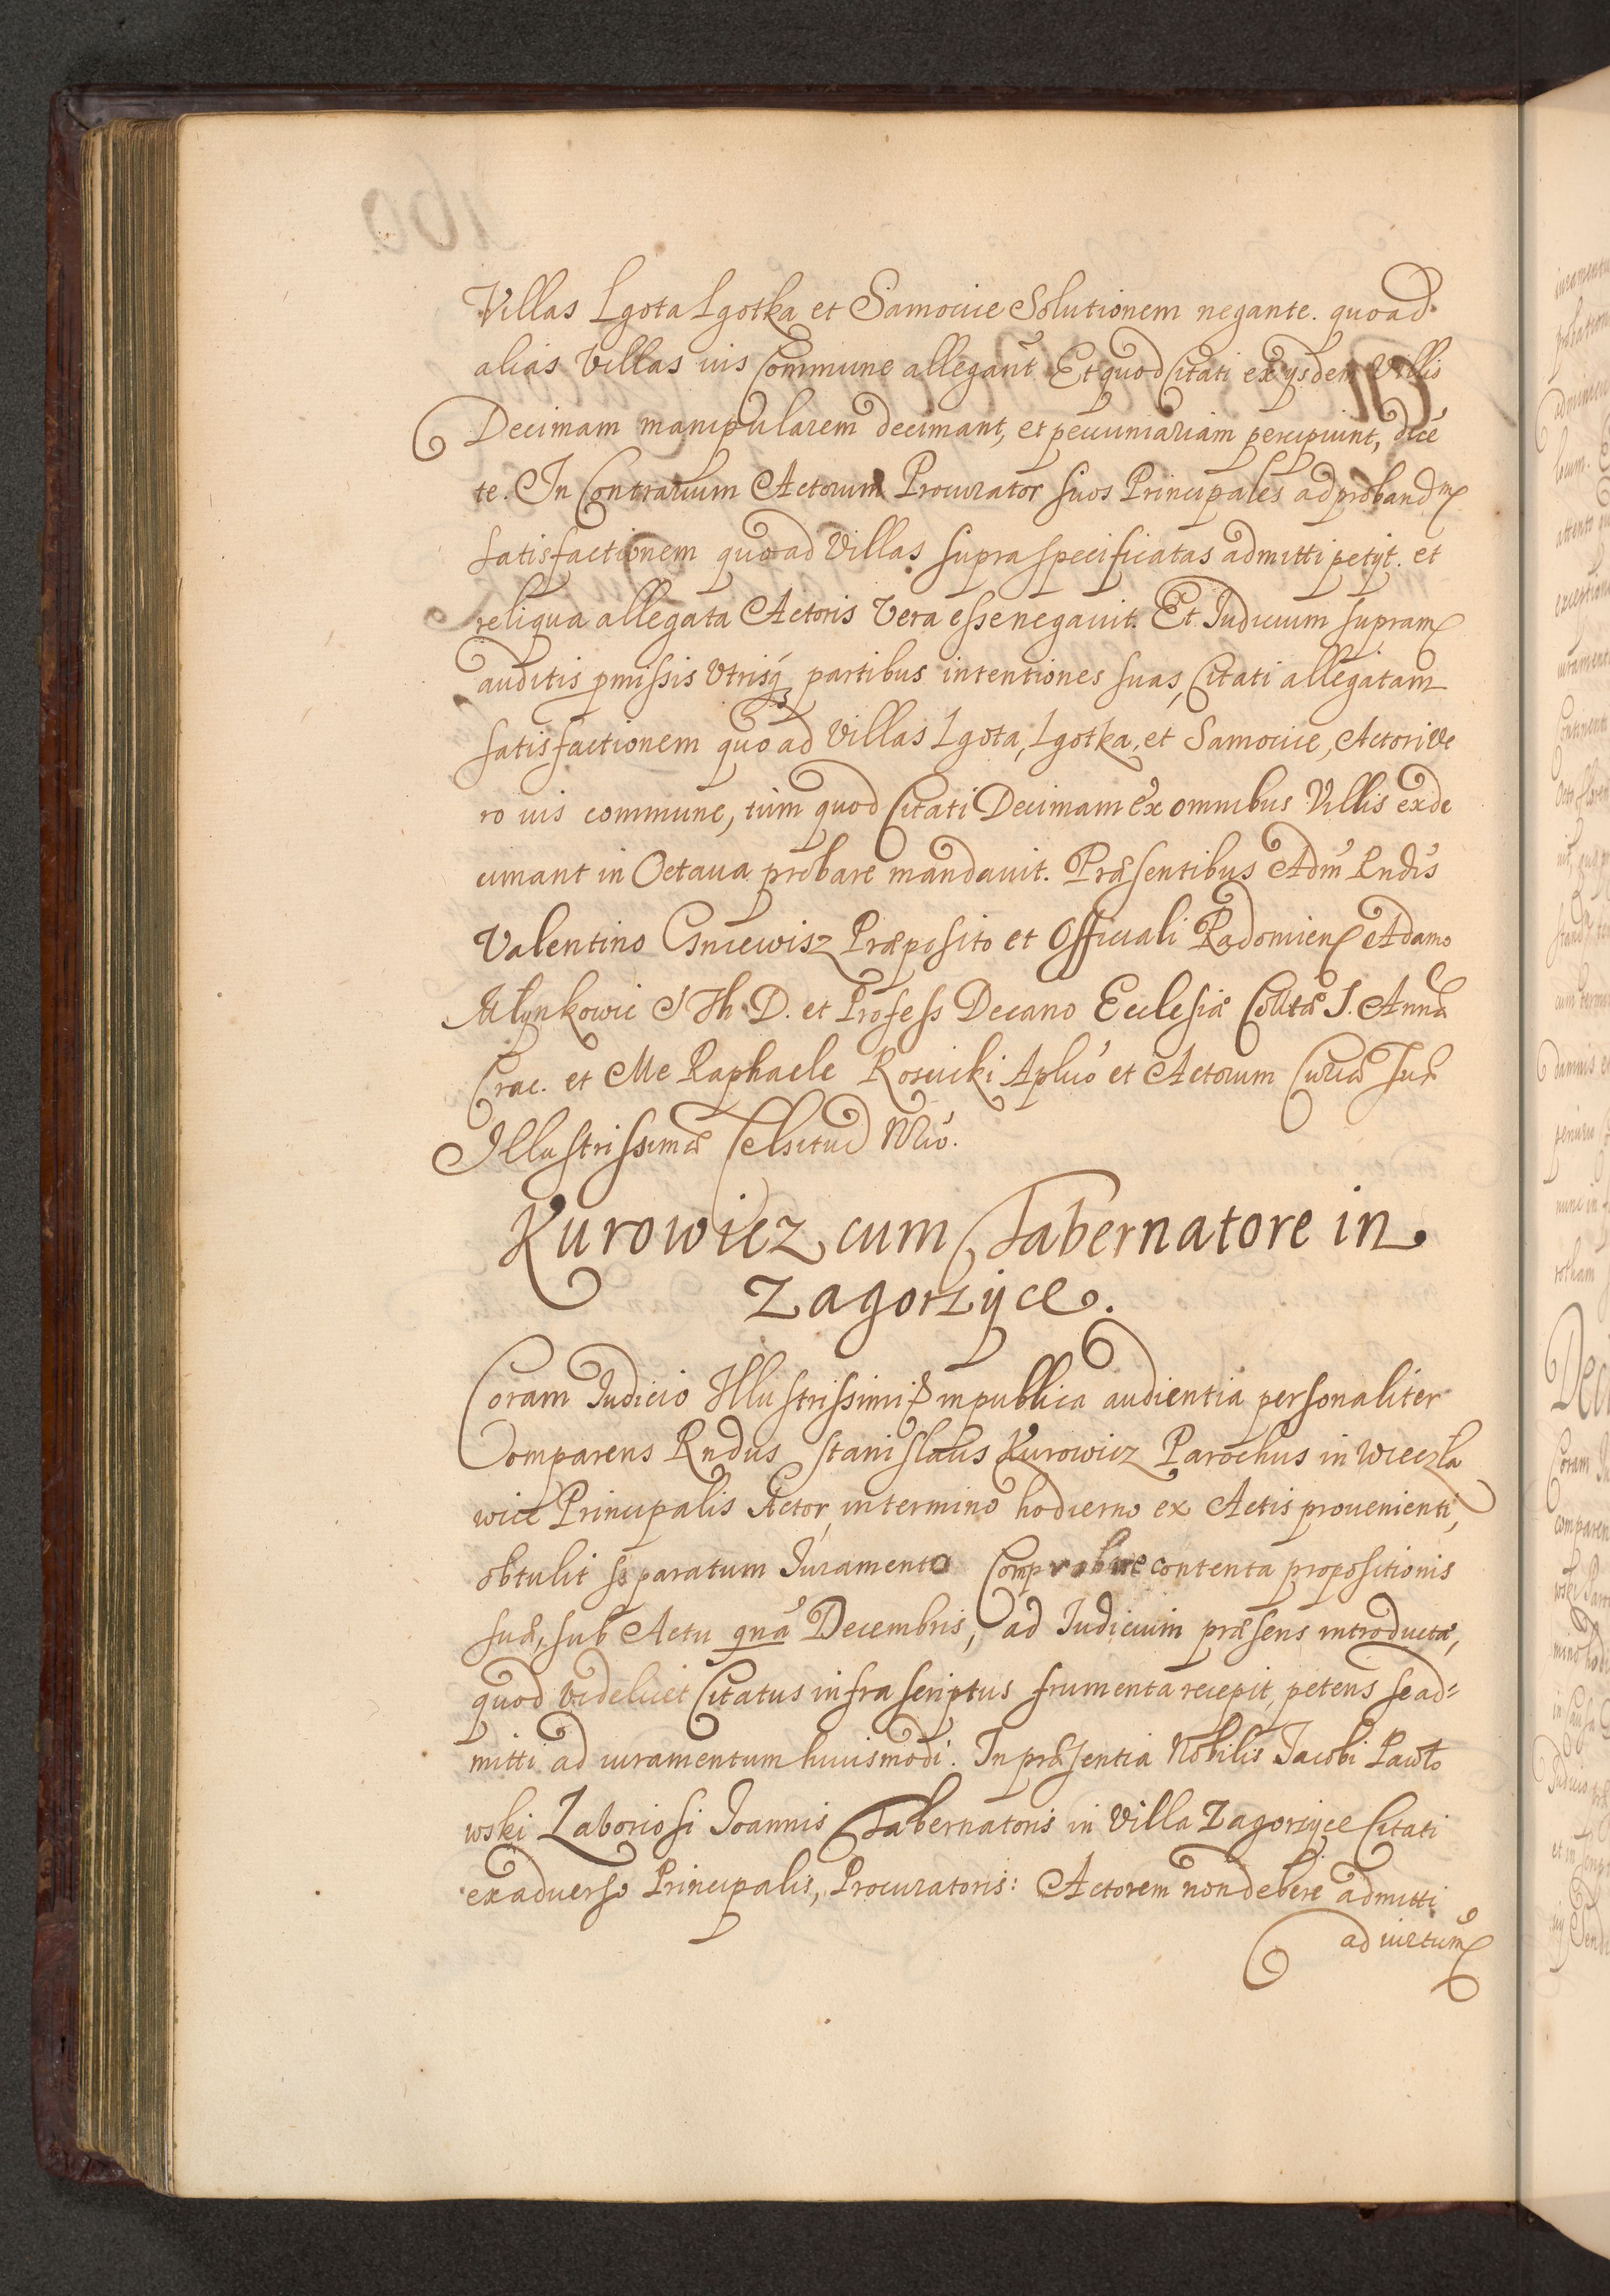 Villas Lgota Lgotka et Samocice Solutionem negante. quoad
alias Villas ius Commune allegant̃ Et quod Citati ex ijsdem Villis
Decimam manipularem decimant, et pecuniariam percipiunt, dicẽ
te. In Contrarium Actorum Procurator suos Principales ad proband̃
satisfactionem quoad Villas supra specificatas admitti petijt. et
reliqua allegata Actoris Vera esse negauit. Et Iudicium supram
auditis pmissis Vtrisq3 partibus intentiones suas, Citati allegatam
satisfactionem quo ad Villas Lgota, Lgotka, et Samocice, Actori Ve
ro ius commune, tum quod Citati Decimam ex omnibus Villis exde
cimant in Octaua probare mandauit. Præsentibus Adm̃ Rndis
Valentino Præposito et Officiali Radomien Adamo
Młynkowic S Th D. et Profess Decano Ecclesiæ Colltæ S. Annæ
Crac. et Me Raphaele Roscicki Aplico et Actorum Curiæ Suæ
Illustrissimæ Celsitud Nrio.
Kurowicz cum Tabernatore in
Zagorzyce.
Coram Iudicio Illustrissimi in publica audientia personaliter
Comparens Rndus Stanislaus Kurowicz Parochus in Wieczla
wice Principalis Actor, in termino hodierno ex Actis prouenienti,
obtulit se paratum Iuramento Comprobare contenta propositionis
suæ, sub Actu qna Decembris, ad Iudicium præsens introductæ,
quod videlicet Citatus infra scriptus frumenta recepit, petens se ad=
mitti ad iuramentum huiusmodi. In præsentia Nobilis Iacobi Pawlo
wski Laboriosi Ioannis Tabernatoris in Villa Zagorzyce Citati
ex aduerso Principalis, Procuratoris: Actorem non debere admitti
ad iurtum